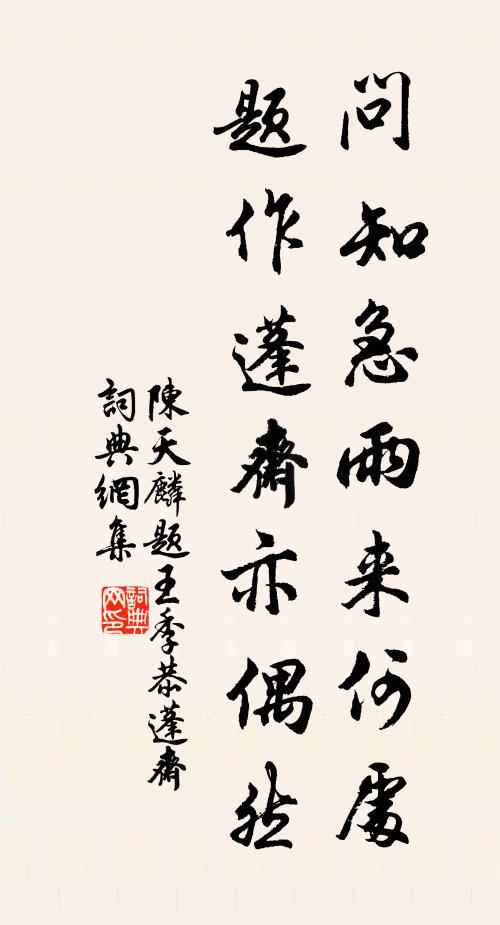 問知急雨来何處
題作蓬齋亦偶然
陳天麟題王季恭蓬齋
詞典網集
詞典网印